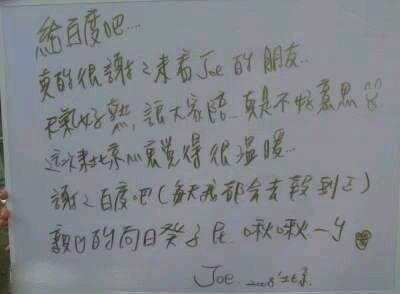 給百度吧...
真的很謝謝來看Joe的朋友..
天氣好熱,讓大家陪...真是不好意思
這次來北京心裏覺得很溫暖...
謝謝百度吧(每天我都會去報到)
親口的向日葵子民 啾啾一
Joe. 2008'北京